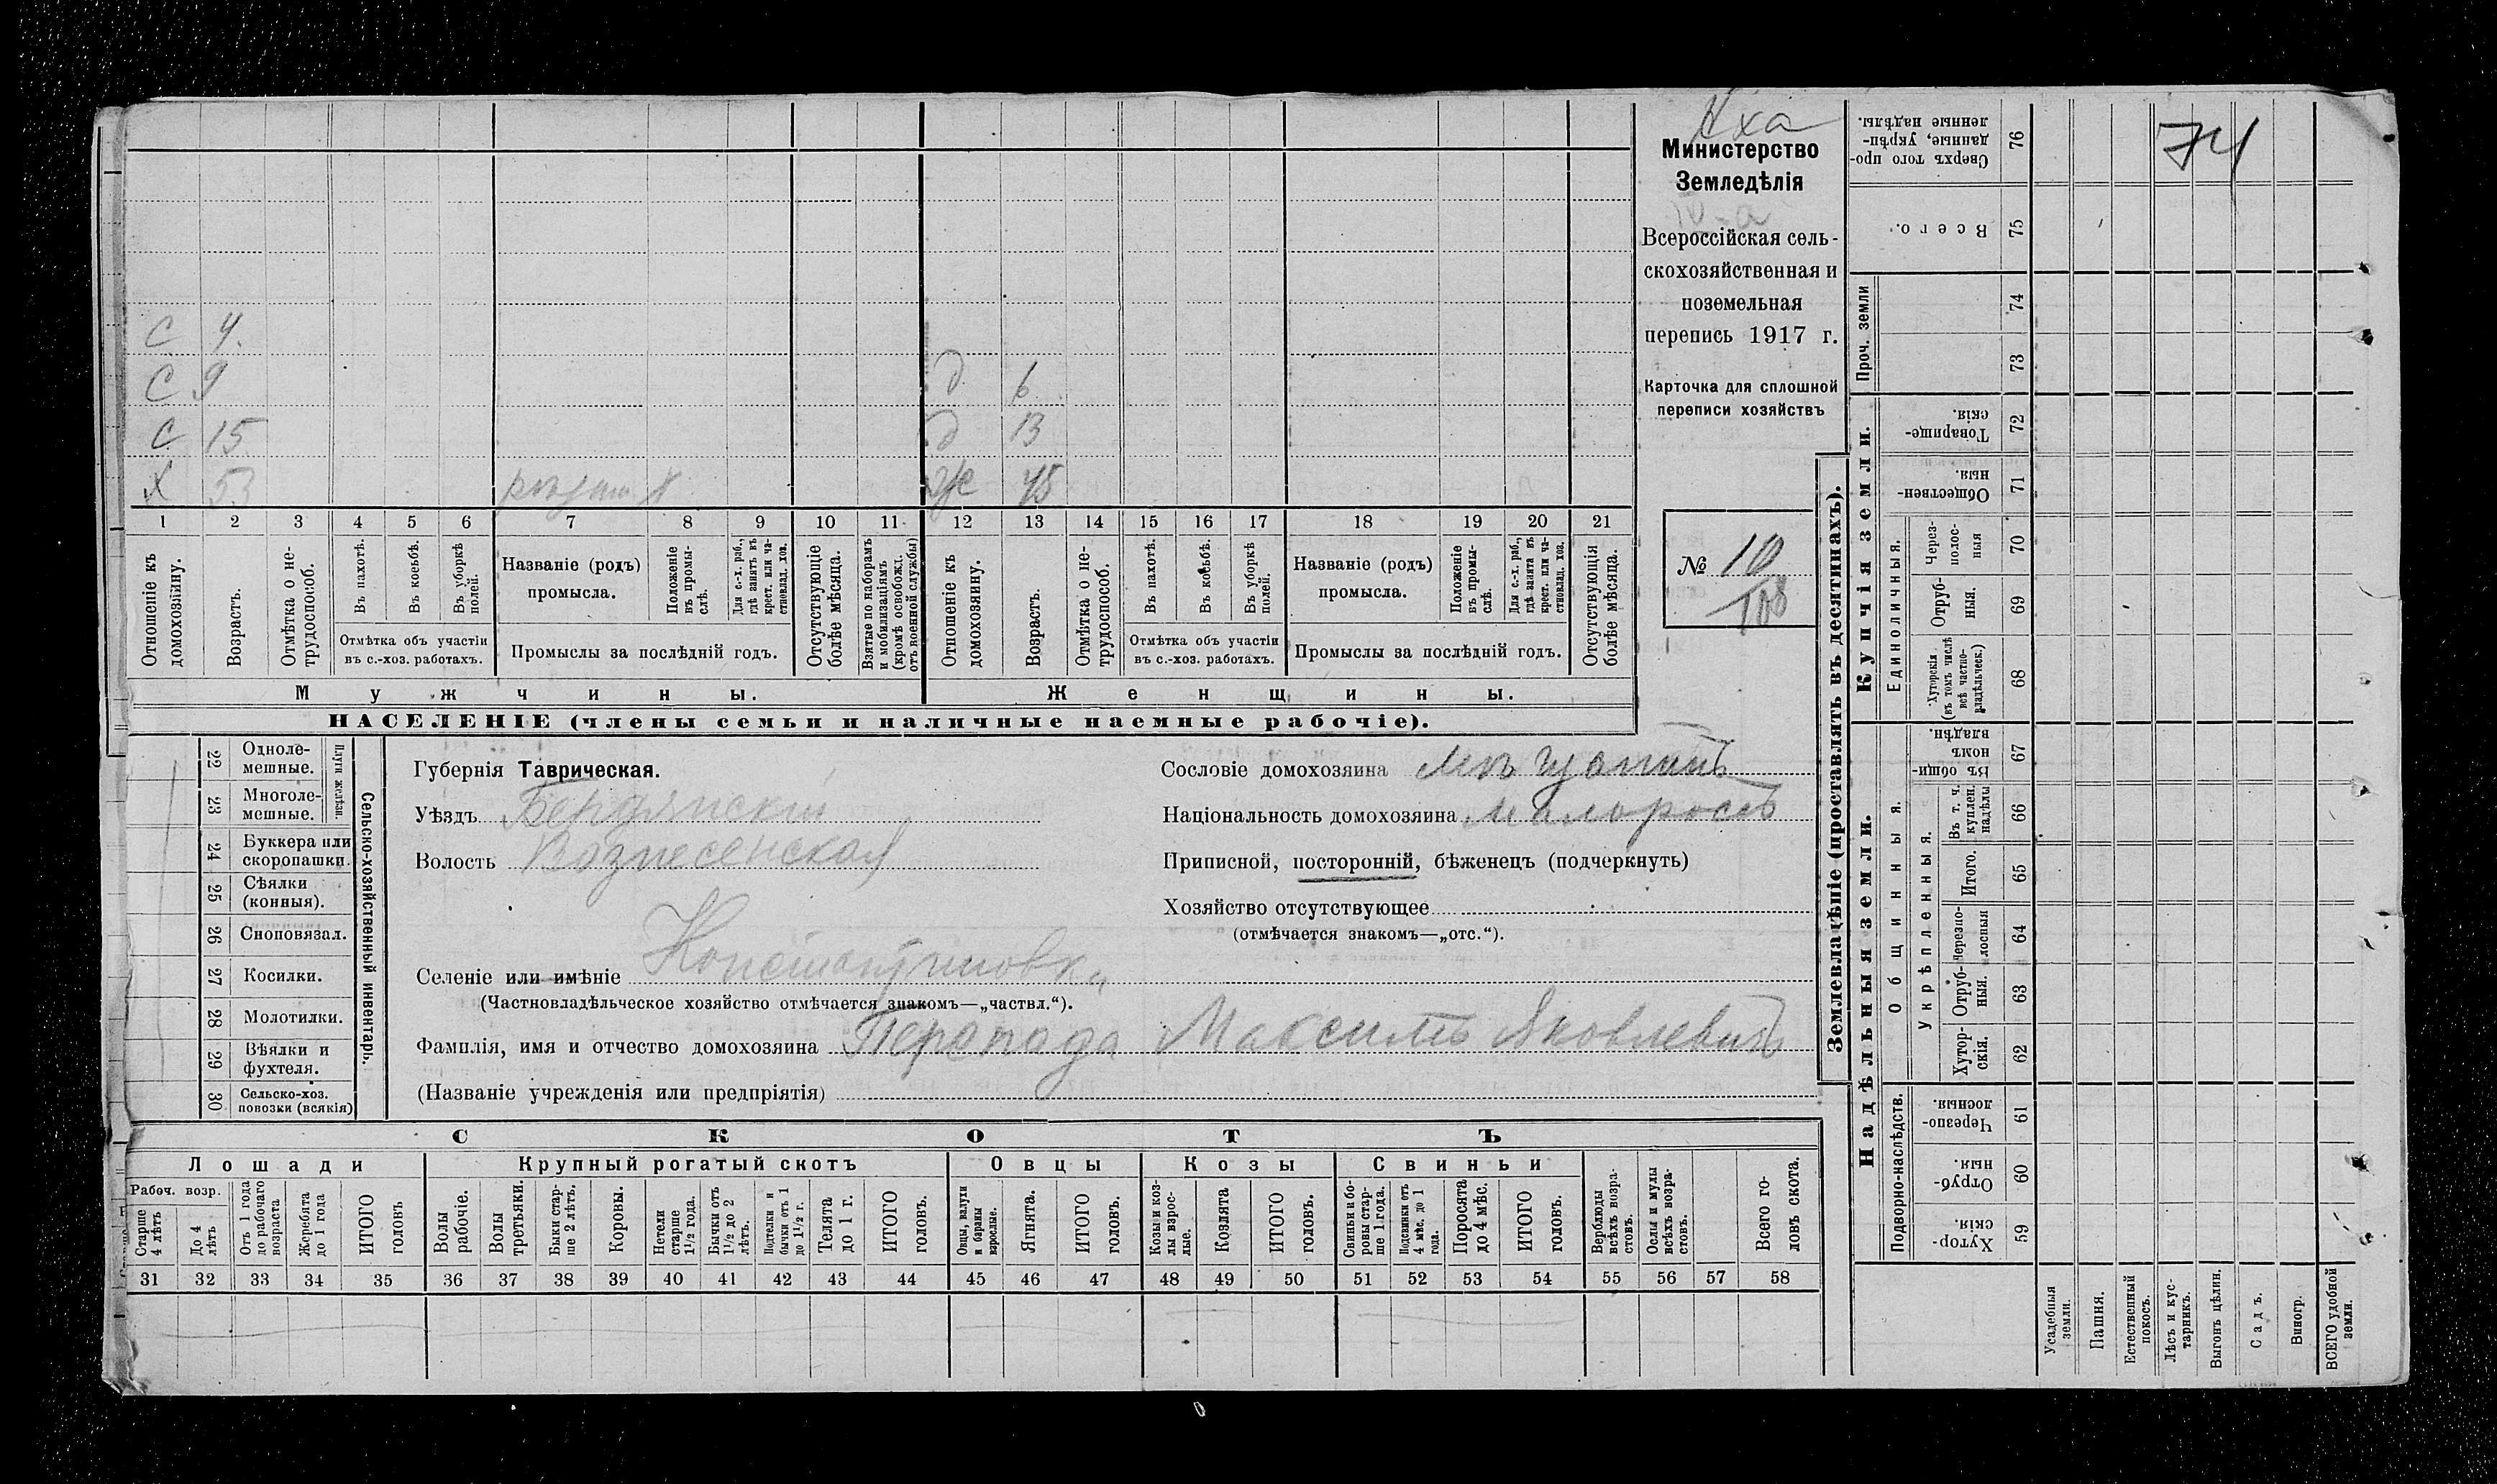 Министерство
Земледѣлія
Всероссійская сель-
скохозяйственная и
поземельная
перепись 1917 г.
Карточка для сплошной
переписи хозяйствъ
№ 10
108
74
С 4
С 9 д 6
С 15 д 13
Х 53 Ж 45
1 2 3 4 5 6 7 8 9 10 11 12 13 14 15 16 17 18 19 20 21
Отношеніе къ домохозяину.
Возрастъ.
Отмѣтка о не-трудоспособ.
Въ пахотѣ.
Въ косьбѣ.
Въ уборкѣ полей.
Отмѣтка объ участіи
въ с.-хоз. работахъ.
Названіе (родъ)
промысла.
Положеніе въ промы-слѣ.
Для с.-х. раб., гдѣ занятъ въ крест. или ча-стновлад. хоз.
Промыслы за послѣдній годъ.
Отсутствующіе болѣе мѣсяца.
Взятые по наборамъ и мобилизаціямъ (кромѣ освобожд. отъ военной службы)
Отношеніе къ домохозяину.
Возрастъ.
Отмѣтка о не-трудоспособ.
Въ пахотѣ.
Въ косьбѣ.
Въ уборкѣ полей.
Отмѣтка объ участіи
въ с.-хоз. работахъ.
Названіе (родъ)
промысла.
Положеніе въ промы-слѣ.
Для с.-х. раб., гдѣ занята въ крест. или ча-стновлад. хоз.
Промыслы за послѣдній годъ.
Отсутствующія болѣе мѣсяца.
Мужчины. Женщины.
НАСЕЛЕНІЕ (члены семьи и наличные наемные рабочіе).
22 Одноле-мешные.
23 Многоле-мешные.
Плуги желѣзн.
24 Буккера или скоропашки.
25 Сѣялки (конныя).
26 Сноповязал.
27 Косилки.
28 Молотилки.
29 Вѣялки и фухтеля.
30 Сельско-хоз. повозки (всякія)
Сельско-хозяйственный инвентарь.
Губернія Таврическая.
Уѣздъ Бердянскій
Волость Вознесенская
Селеніе или имѣніе Константиновка
(Частновладѣльческое хозяйство отмѣчается знакомъ—„частвл.“).
Фамилія, имя и отчество домохозяина Перепада Максимъ Яковлевичъ
(Названіе учрежденія или предпріятія)
Сословіе домохозяина мѣщанинъ
Національность домохозяина малороссъ
Приписной, посторонній, бѣженецъ (подчеркнуть)
Хозяйство отсутствующее
(отмѣчается знакомъ—„отс.“).
СКОТЪ
Лошади Крупный рогатый скотъ Овцы Козы Свиньи
Рабоч. возр.
Старше 4 лѣтъ
До 4 лѣтъ
Отъ 1 года до рабочаго возраста
Жеребята до 1 года
ИТОГО головъ
Волы рабочіе.
Волы третьяки.
Быки стар-ше 2 лѣтъ.
Коровы.
Нетели старше 1½ года.
Бычки отъ 1½ до 2 лѣтъ.
Подтелки и бычки отъ 1 до 1½ г.
Телята до 1 г.
ИТОГО головъ.
Овцы, валухи и бараны взрослые.
Ягнята.
ИТОГО головъ.
Козы и коз-лы взрос-лые.
Козлята
ИТОГО головъ.
Свиньи и бо-ровы стар-ше 1 года.
Подсвинки отъ 4 мѣс. до 1 года.
Поросята до 4 мѣс.
ИТОГО головъ.
Верблюды всѣхъ возра-стовъ.
Ослы и мулы всѣхъ возра-стовъ.
Всего го-ловъ скота.
31 32 33 34 35 36 37 38 39 40 41 42 43 44 45 46 47 48 49 50 51 52 53 54 55 56 57 58
Землевладѣніе (проставлять въ десятинахъ).
Сверхъ того про-данные, укрѣп-ленные надѣлы. 76
Всего. 75
Проч. земли 74
73
Купчія земли.
Товарище-скія. 72
Обществен-ныя 71
Единоличныя.
Через-полос-ныя 70
Отруб-ныя. 69
Хуторскія (въ томъ числѣ всѣ частно-владѣльческ.) 68
Надѣльныя земли.
Общинныя.
Въ общи-номъ владѣн. 67
Укрѣпленныя.
Въ т. ч. куплен. надѣлы 66
Итого. 65
Черезпо-лосныя 64
Отруб-ныя. 63
Хутор-скія. 62
Подворно-наслѣдств.
Черезпо-лосныя. 61
Отруб-ныя. 60
Хутор-скія 59
Усадебныя земли.
Пашня.
Естественный покосъ.
Лѣсъ и кус-тарникъ.
Выгонъ цѣлин.
Садъ.
Виногр.
ВСЕГО удобной земли.